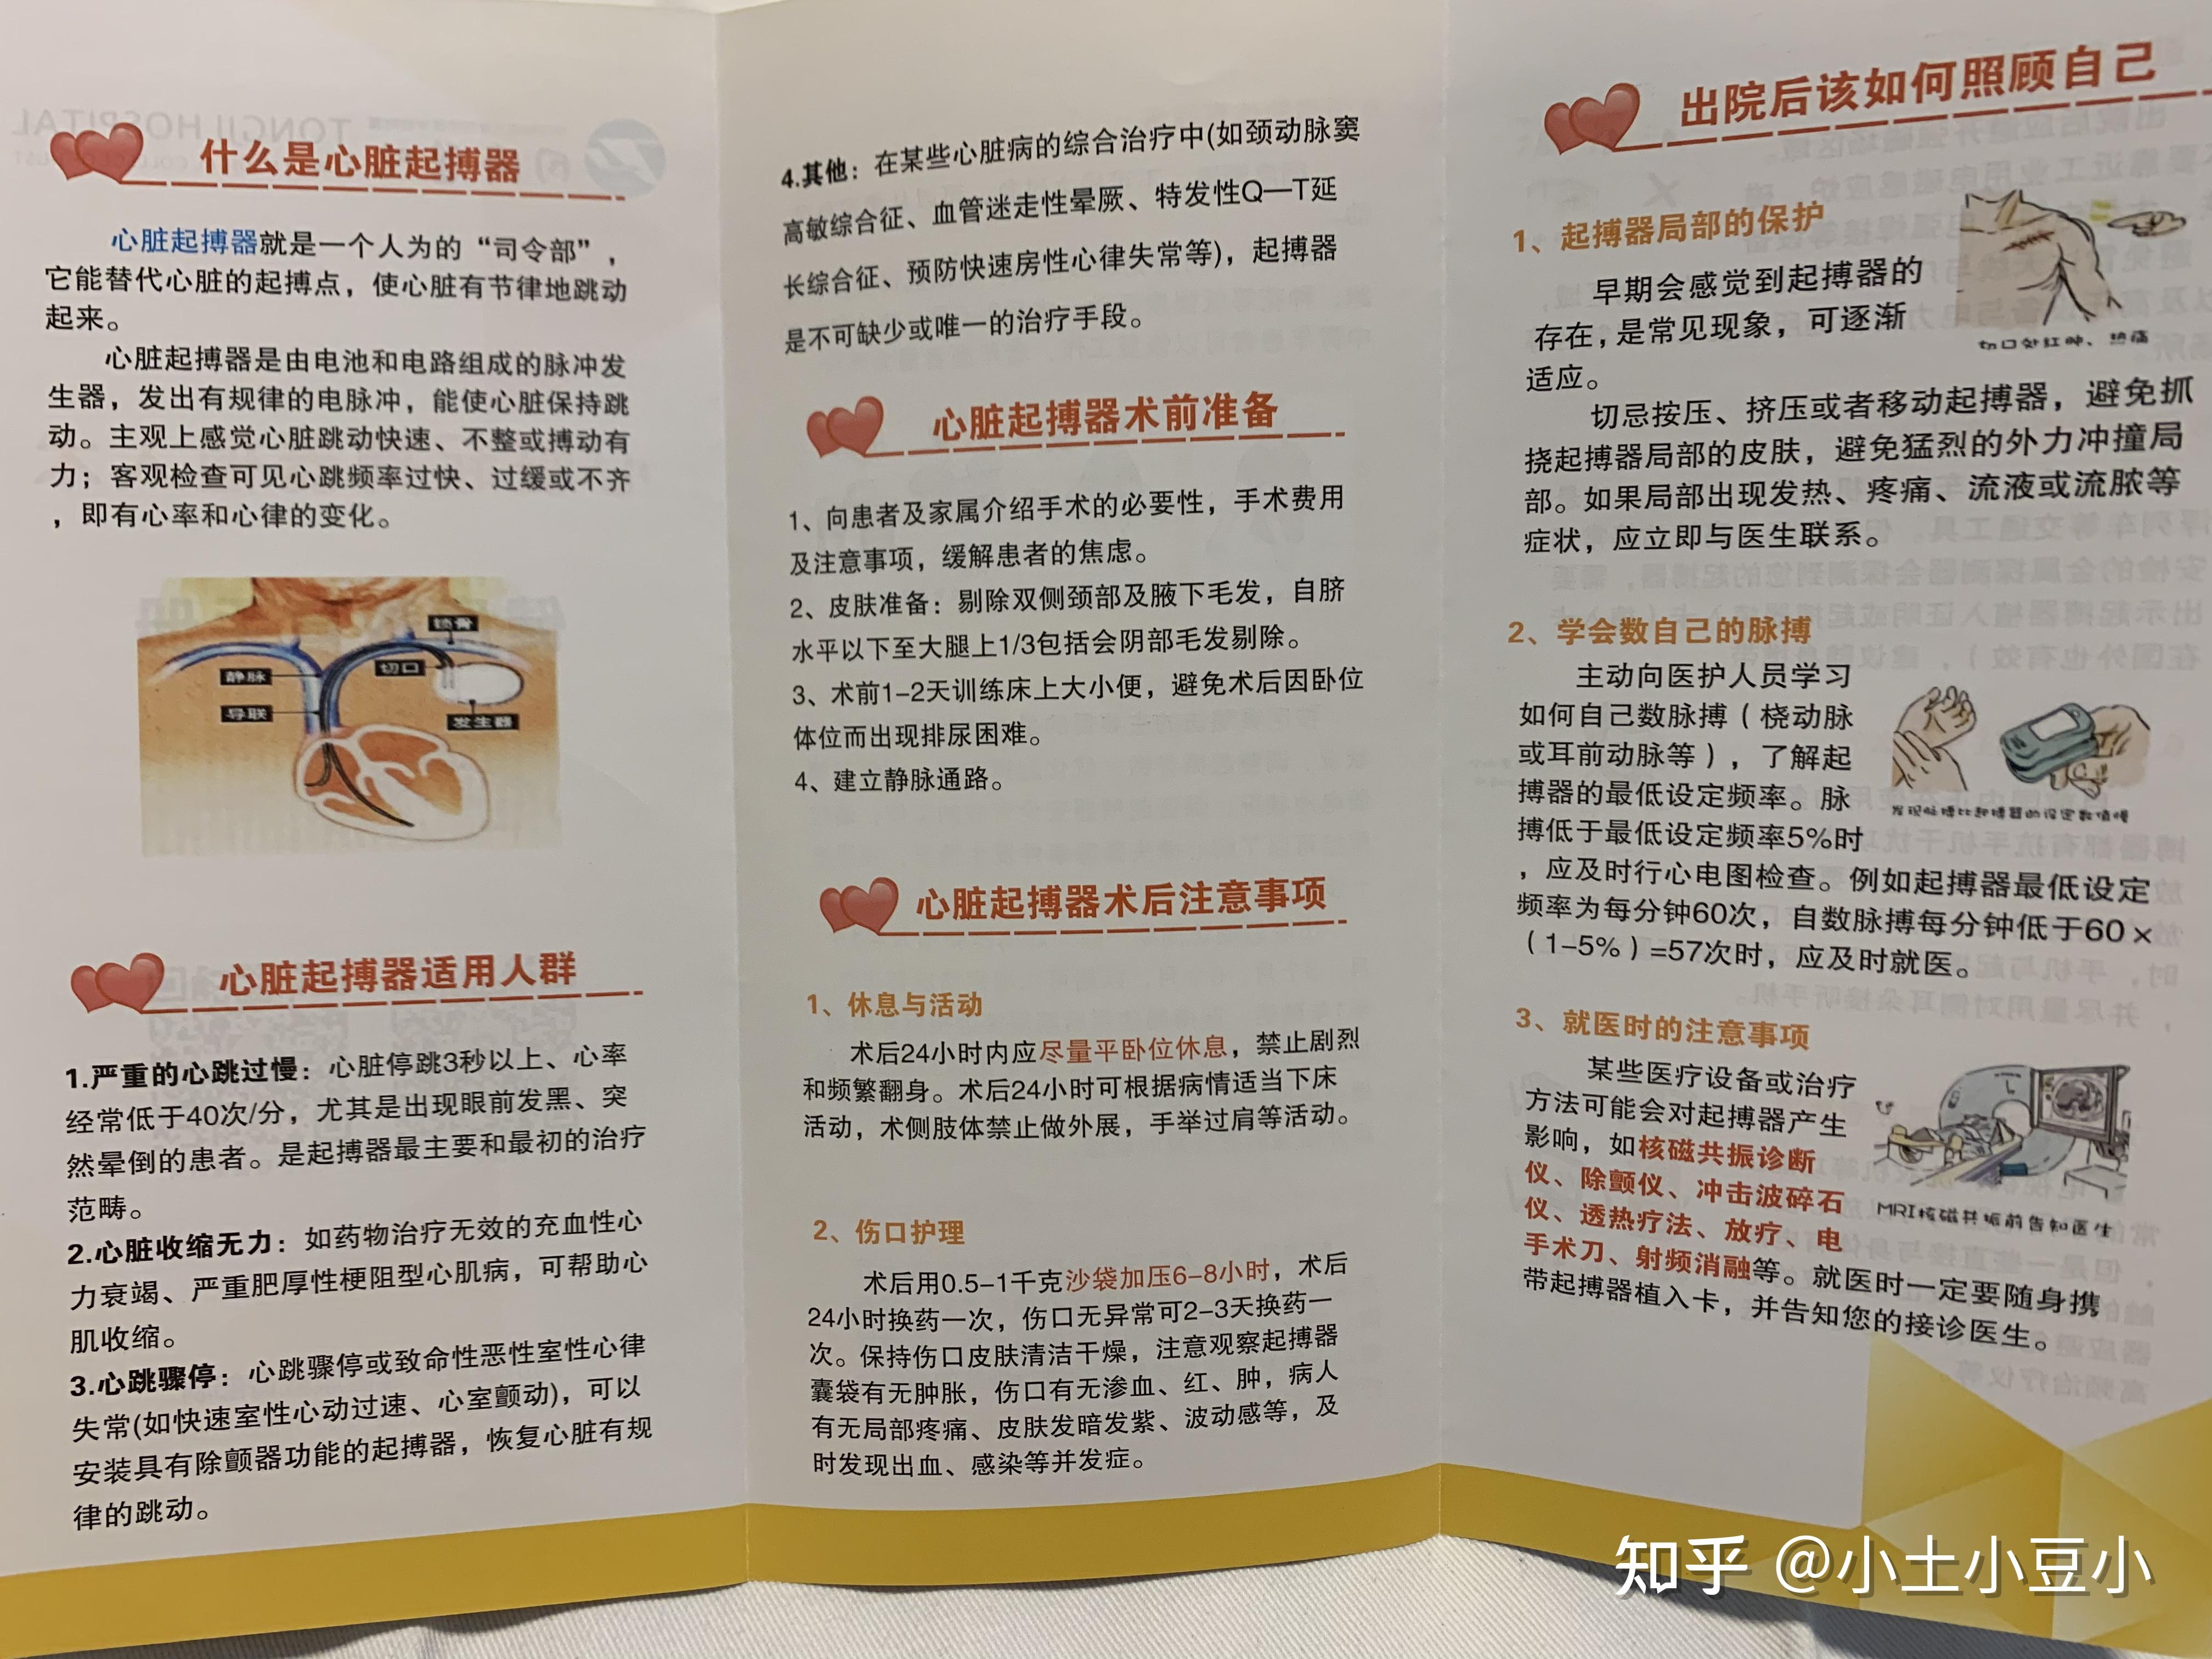 什么是心脏起搏器
心脏起搏器就是一个人为的“司令部”，
它能替代心脏的起搏点，使心脏有节律地跳动
起来。
心脏起搏器是由电池和电路组成的脉冲发
生器，发出有规律的电脉冲，能使心脏保持跳
动。主观上感觉心脏跳动快速、不整或搏动有
力；客观检查可见心跳频率过快、过缓或不齐
，即有心率和心律的变化。
锁骨
静脉
切口
导联
发生器
心脏起搏器适用人群
1.严重的心跳过慢：心脏停跳3秒以上、心率
经常低于40次/分，尤其是出现眼前发黑、突
然晕倒的患者。是起搏器最主要和最初的治疗
范畴。
2.心脏收缩无力：如药物治疗无效的充血性心
力衰竭、严重肥厚性梗阻型心肌病，可帮助心
肌收缩。
3.心跳骤停：心跳骤停或致命性恶性室性心律
失常(如快速室性心动过速、心室颤动)，可以
安装具有除颤器功能的起搏器，恢复心脏有规
律的跳动。
4.其他：在某些心脏病的综合治疗中(如颈动脉窦
高敏综合征、血管迷走性晕厥、特发性Q—T延
长综合征、预防快速房性心律失常等)，起搏器
是不可缺少或唯一的治疗手段。
心脏起搏器术前准备
1、向患者及家属介绍手术的必要性，手术费用
及注意事项，缓解患者的焦虑。
2、皮肤准备：剔除双侧颈部及腋下毛发，自脐
水平以下至大腿上1/3包括会阴部毛发剔除。
3、术前1-2天训练床上大小便，避免术后因卧位
体位而出现排尿困难。
4、建立静脉通路。
心脏起搏器术后注意事项
1、休息与活动
术后24小时内应尽量平卧位休息，禁止剧烈
和频繁翻身。术后24小时可根据病情适当下床
活动，术侧肢体禁止做外展，手举过肩等活动。
2、伤口护理
术后用0.5-1千克沙袋加压6-8小时，术后
24小时换药一次，伤口无异常可2-3天换药一
次。保持伤口皮肤清洁干燥，注意观察起搏器
囊袋有无肿胀，伤口有无渗血、红、肿，病人
有无局部疼痛、皮肤发暗发紫、波动感等，及
时发现出血、感染等并发症。
出院后该如何照顾自己
1、起搏器局部的保护
早期会感觉到起搏器的
存在，是常见现象，可逐渐
适应。
切口处红肿、热痛
切忌按压、挤压或者移动起搏器，避免抓
挠起搏器局部的皮肤，避免猛烈的外力冲撞局
部。如果局部出现发热、疼痛、流液或流脓等
症状，应立即与医生联系。
2、学会数自己的脉搏
主动向医护人员学习
如何自己数脉搏（桡动脉
或耳前动脉等），了解起
搏器的最低设定频率。脉
搏低于最低设定频率5%时
，应及时行心电图检查。例如起搏器最低设定
频率为每分钟60次，自数脉搏每分钟低于60×
（1-5%）=57次时，应及时就医。
发现脉搏比起搏器的设定数值慢
3、就医时的注意事项
某些医疗设备或治疗
方法可能会对起搏器产生
影响，如核磁共振诊断
仪、除颤仪、冲击波碎石
仪、透热疗法、放疗、电
手术刀、射频消融等。就医时一定要随身携
带起搏器植入卡，并告知您的接诊医生。
MRI核磁共振前告知医生
知乎 @小土小豆小